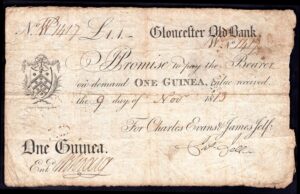 No. W3417 L 1.1. Gloucester Old Bank.
No. 3417
I Promise to pay the Bearer
on demand ONE GUINEA, value received
the 9 day of Nov 1813
For Charles Evans & James Jelf
One Guinea.
Entd
Jas Jelf